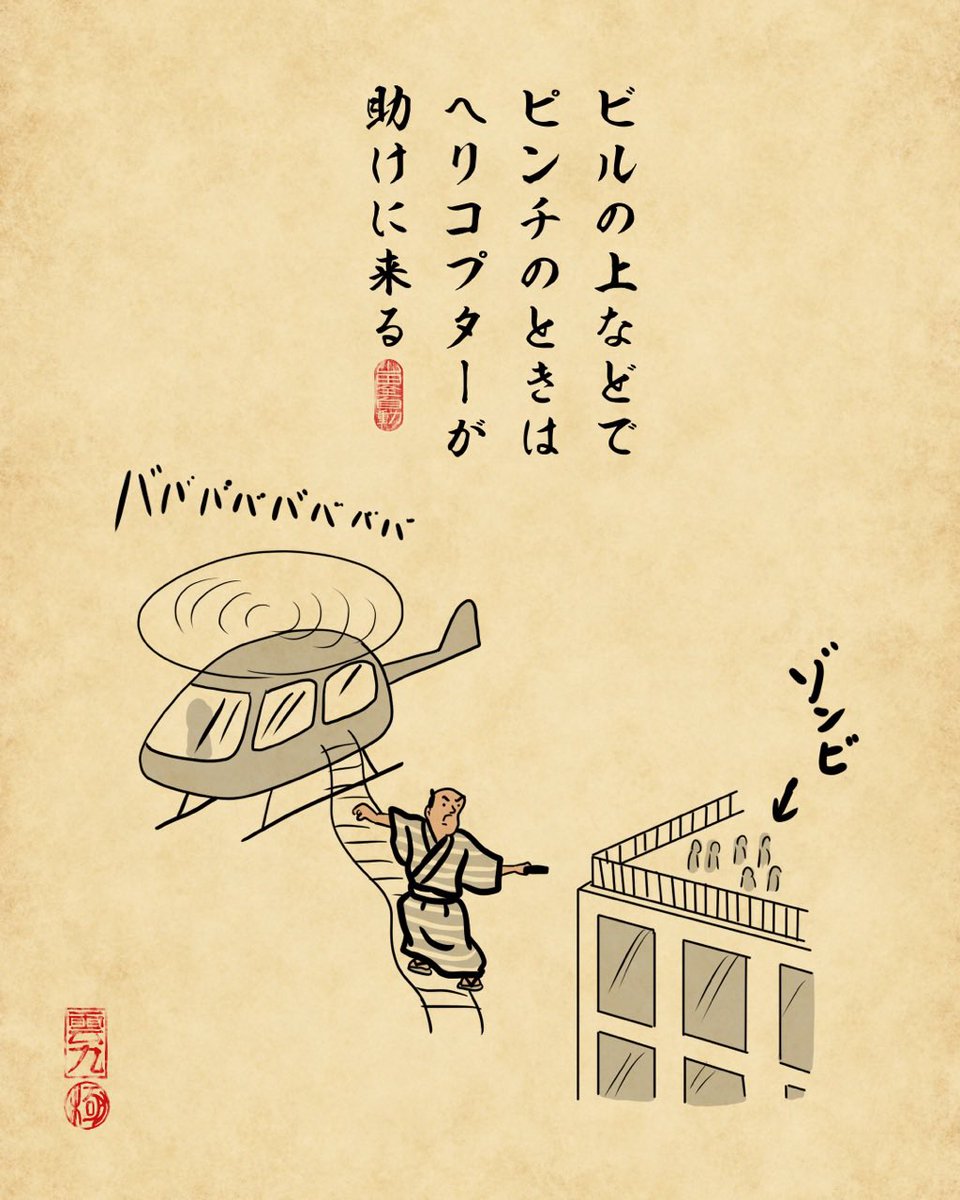 ビルの上などで
ピンチのときは
ヘリコプターが
助けに来る
バババババババババ
ゾンビ